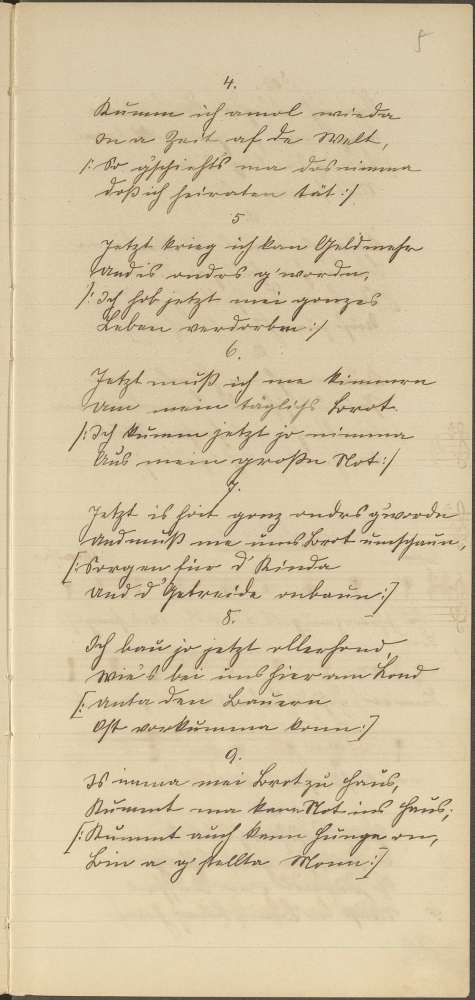 5
4.
Kumm ich amol wieda
In a Zeit af de Welt,
/: So g'schiehts ma das nimma
daß ich heiraten tät :/
5
Jetzt krieg ich kan Geld mehr
Und is andas g'wordn,
/: Ich hob jetzt mei ganzes
Leben verdorben :/
6.
Jetzt muß ich me kimmern
Um mein täglichs Brot.
/: Ich kumm jetzt jo nimma
Aus mein großen Not :/
7.
Jetzt is hoit gonz andas g'wordn
Und muß me ums Brot umschaun,
[: Sorgen für d' Kinda
Und d' Getreide onbaun :]
8.
Ich bau jo jetzt ollerhond,
Wie's bei uns hier am Lond
[: Unta den Bauern
Oft vorkumma konn :]
9.
Is imma mei Brot zu Haus,
Kummt ma kane Not ins Haus;
[: Kummt auch kenn Hunga on,
Bin a g'stellta Monn :]